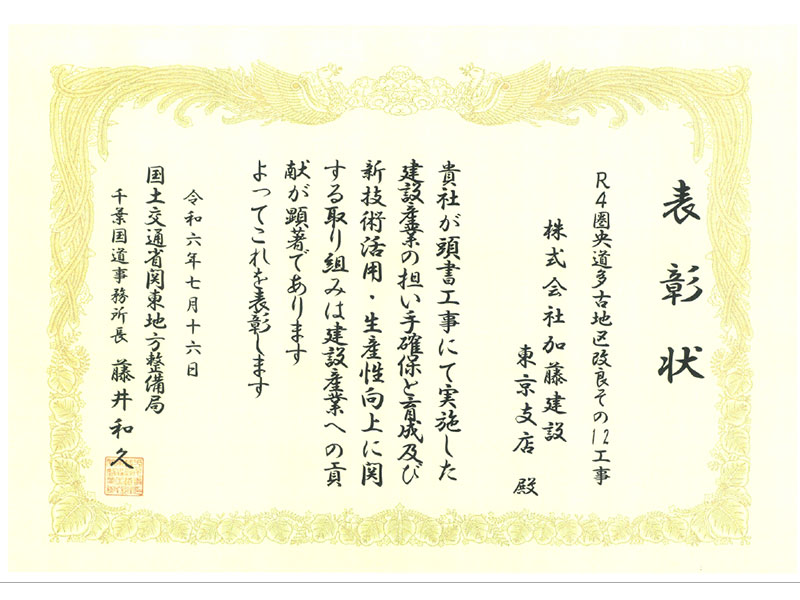 表彰状
R4圏央道多古地区改良その12工事
株式会社加藤建設
東京支店 殿
貴社が頭書工事にて実施した
建設産業の担い手確保と育成及び
新技術活用・生産性向上に関
する取り組みは建設産業への貢
献が顕著であります
よってこれを表彰します
令和六年七月十六日
国土交通省関東地方整備局
千葉国道事務所長 藤井和久